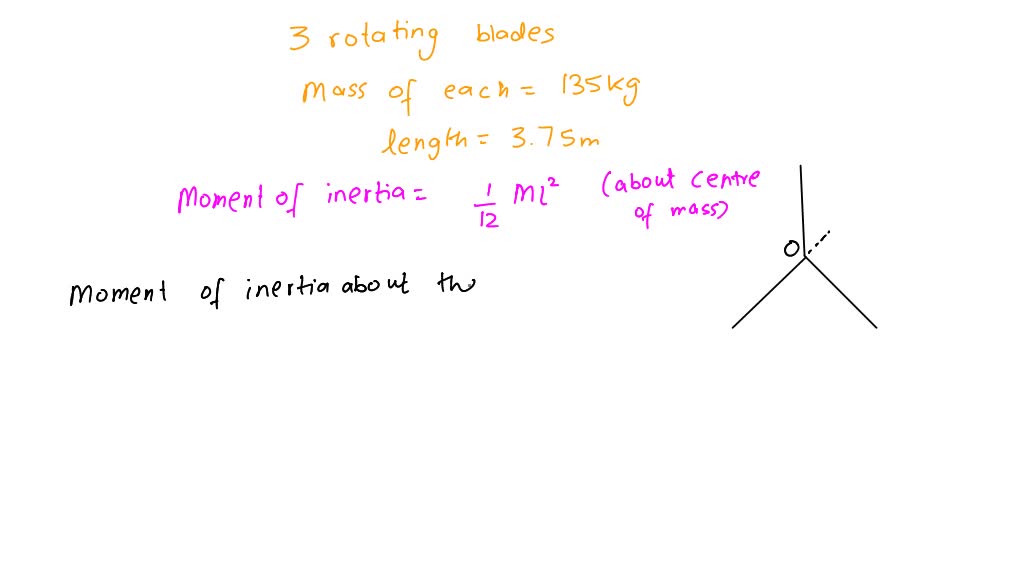 3 rotating blades
Mass of each = 135kg
length = 3.75m
Moment of inertia = 1/12 Ml² (about centre of mass)
O
Moment of inertia about